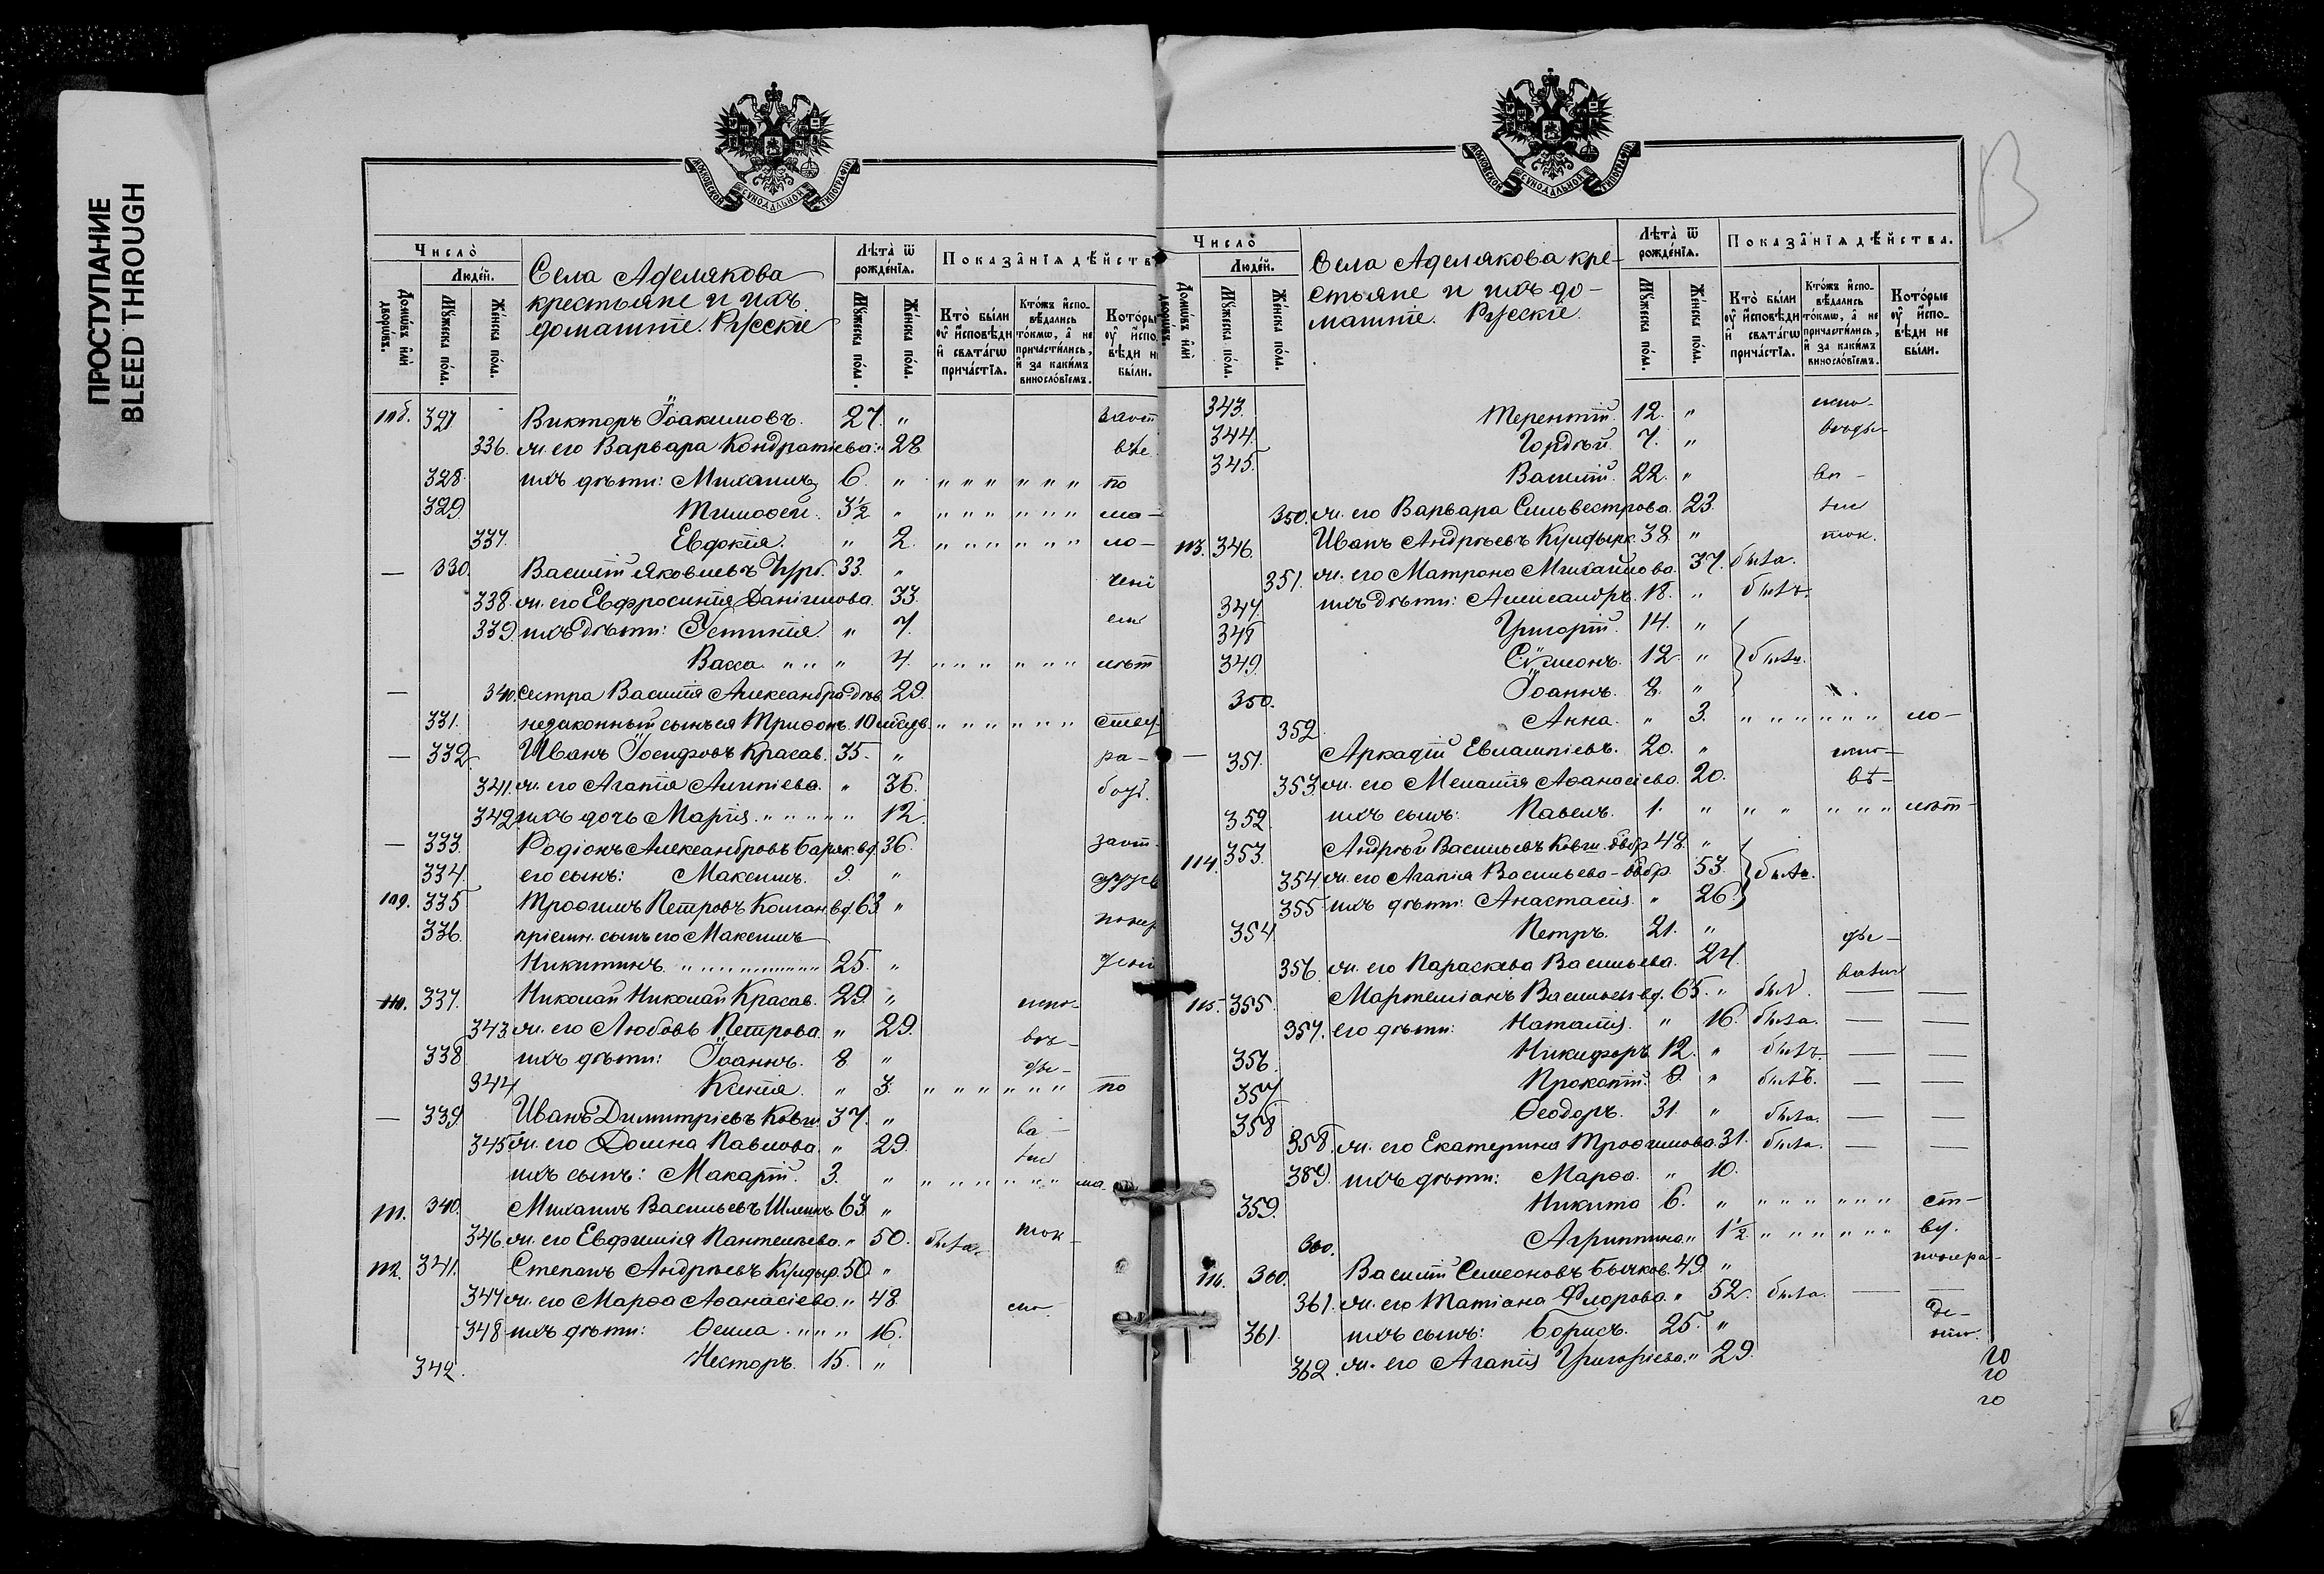 ПРОСТУПАНИЕ
BLEED THROUGH
МОСКОВСКОЙ СѴНОДАЛЬНОЙ ТИПОГРАФІИ
Число̀
Людей.
Домѡвъ илѝ дворѡвъ.
Мꙋжеска по́ла.
Же́нска по́ла.
Села Аделякова
крестьяне и ихъ
домашніе. Русскіе
Лѣта̀ ѿ рожде́нїѧ.
Мꙋжеска по́ла.
Же́нска по́ла.
Показа̂нїѧ дѣйств
Кто̀ бы́ли оу҆ и҆сповѣди и҆ свѧта́гѡ прича́стїѧ.
Кто́жъ и҆спо-вѣдались то́кмѡ, а҆ не причасти́лись, и҆ за каки́мъ виносло́вїемъ.
Кото́ры оу҆ и҆спо-вѣди н бы́ли.
108. 327 Викторъ Іоакимовъ. 27. "
336. ж. его Варвара Кондратіева. " 28
328. ихъ дѣти: Михаилъ 6. " " " " " " " по
329. Тимоѳей. 3½ " " " " " " " ма-
337. Евдокія. " 2. " " " " " " ло-
— 330. Василій Яковлевъ 33. "
338. ж. его Евфросинія Данілова. 33.
339. ихъ дѣти: Устинія. " 7.
Васса. " " " 4. " " " " " " лѣт
— 340. сестра Василія Александра дѣв. 29.
331. незаконный сынъ ея Трифонъ. 10 " " " " " "
— 332. Иванъ Іосифовъ Красав. 35. " ра-
341. ж. его Агапія Алипіева. " 36. бот.
342. ихъ дочь Марія. " " " " " 12.
— 333. Родіонъ Александровъ Баряк. вд. 36.
334. его сынъ: Максимъ. 9. "
109. 335 Трофимъ Петровъ Колган. вд. 63. "
336. пріемн. сынъ его Максимъ
Никитинъ. " " " " " " 25. "
110. 337. Николай Николай Красав. 29. " испо-
343. ж. его Любовь Петрова. " 29.
338 ихъ дѣти: Іоаннъ. 8. "
344 Ксенія. " 3. " " " " " " по
— 339. Иванъ Димитріевъ Ковш. 37. " ва-
345 ж. его Домна Павлова. " 29.
ихъ сынъ: Макарій. 3. " " " " " " " ма.
111. 340. Михаилъ Васильевъ Шлепк. 63. "
346. ж. его Евфимія Пантелѣева. " 50. была. ток-
112. 341. Степанъ Андреевъ Кулдыр. 50. "
347 ж. его Марѳа Аѳанасіева. " 48.
348 ихъ дѣти: Ѳекла. " " " 16.
342. Несторъ. 15. "
МОСКОВСКОЙ СѴНОДАЛЬНОЙ ТИПОГРАФІИ
В
Число̀
Людей.
Домѡвъ илѝ дворѡвъ.
Мꙋжеска по́ла.
Же́нска по́ла.
Села Аделякова кре-
стьяне и ихъ до-
машніе. Русскіе.
Лѣта̀ ѿ рожде́нїѧ.
Мꙋжеска по́ла.
Же́нска по́ла.
Показа̂нїѧ дѣйства.
Кто̀ бы́ли оу҆ и҆сповѣди и҆ свѧта́гѡ прича́стїѧ.
Кто́жъ и҆спо-вѣдались то́кмѡ, а҆ не причасти́лись, и҆ за каки́мъ виносло́вїемъ.
Кото́рые оу҆ и҆спо-вѣди не бы́ли.
343. Терентій. 12. " испо-
344. Гордѣй. 7. "
345. Василій. 22. "
350. ж. его Варвара Сильвестрова. 23.
113. 346. Иванъ Андреевъ Кулдырк. 38. " ток.
351. ж. его Матрона Михайлова. 37. была.
347. ихъ дѣти: Александръ. 18. " былъ.
348 Григорій. 14. "
349. Сѵмеонъ. 12. " были.
350. Іоаннъ. 8. "
352. Анна. " 3. " " " " " " ло-
— 351. Аркадій Евлампіевъ. 20. " испо-
353. ж. его Меланія Аѳанасіева. 20. вѣ-
352. ихъ сынъ: Павелъ. 1. " " " " " " лѣт-
114. 353. Андрей Васильевъ Ковш. 48. "
354 ж. его Агапія Васильева 53. были.
355 ихъ дѣти: Анастасія. " 26.
354 Петръ. 21. "
356. ж. его Параскева Васильева. 24.
115. 355. Мартеміанъ Васильевъ вд. 65. " был. — —
357. его дѣти: Наталія. " 16. была. — —
356. Никифоръ. 12. " былъ. — —
357. Прокопій. 9. " былъ. — —
358 Ѳеодоръ. 31. " была. — —
358. ж. его Екатерина Трофимова. 31. была. — —
389. ихъ дѣти: Марѳа. " 10.
359. Никита 6. " " " " " " "
360. Агриппина. " 1½ " " " " " "
116. 360. Василій Симеоновъ Бычков. 49. "
361. ж. его Татіана Флорова. " 52. была. — —
361. ихъ сынъ: Борисъ. 25. "
362. ж. его Агапія Григоріева. " 29.
го
го
го